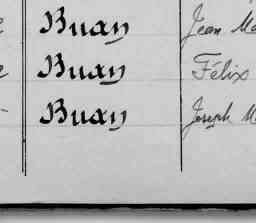 Buan Jean Ma
Buan Félix
Buan Joseph M